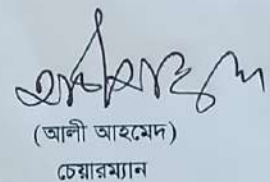 (আলী আহমেদ)
চেয়ারম্যান